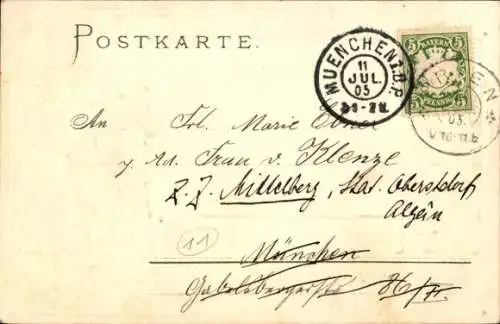 POSTKARTE.
MUENCHEN I.B.P.
11
JUL.
05
5 BAYERN 5
5 PFENNIG 5
EN
05.
V 10-11 B
An Frl. Marie Ebner
p. Ad. Frau v. Klenze
z. Z. Mittelberg, Stat. Oberstdorf
Algäu
11
München
Gabelsbergerstr.